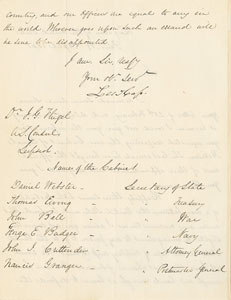 Counted, and our Officers are equal to any in
the world. Whoever goes upon such an errand will
be sure to be disappointed
I am Sir, resply
Your Ob. Servt
Dr. J. G. Flügel
U.S. Consul
Leipsic.
Names of the Cabinet
Daniel Webster - Secretary of State
Thomas Ewing - " Treasury
John Bell - " War
George E. Badger - " Navy
John J. Crittenden - Attorney General
Francis Granger - Postmaster General